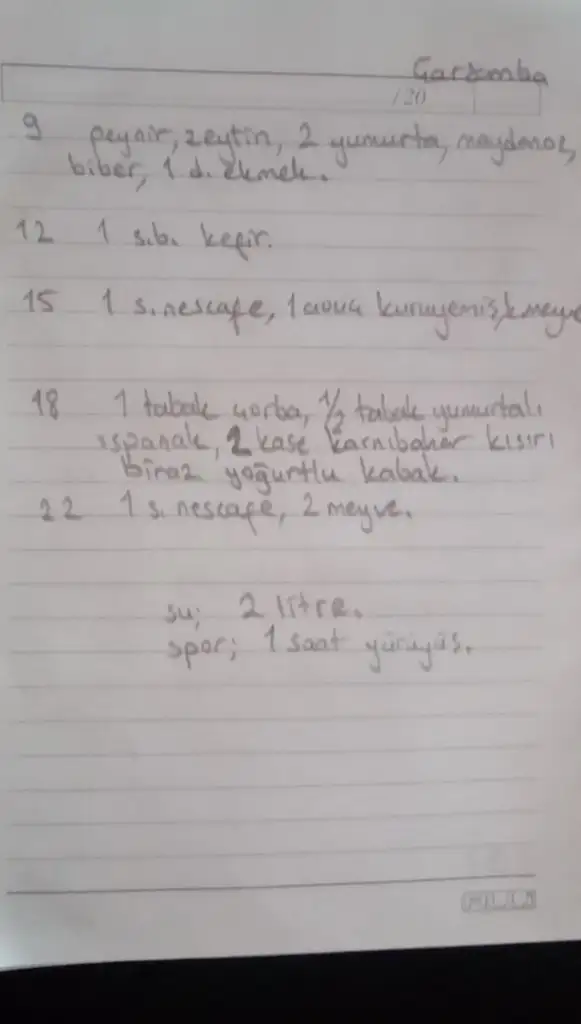 Çarşamba
/20
9 peynir, zeytin, 2 yumurta, maydanoz,
biber, 1 d. ekmek.
12 1 s.b. kefir.
15 1 s. nescafe, 1 avuç kuruyemiş,
18 1 tabak çorba, 1/2 tabak yumurtalı
ıspanak, 2 kase karnıbahar kısırı
biraz yoğurtlu kabak.
22 1 s. nescafe, 2 meyve.
su; 2 litre.
spor; 1 saat yürüyüş.